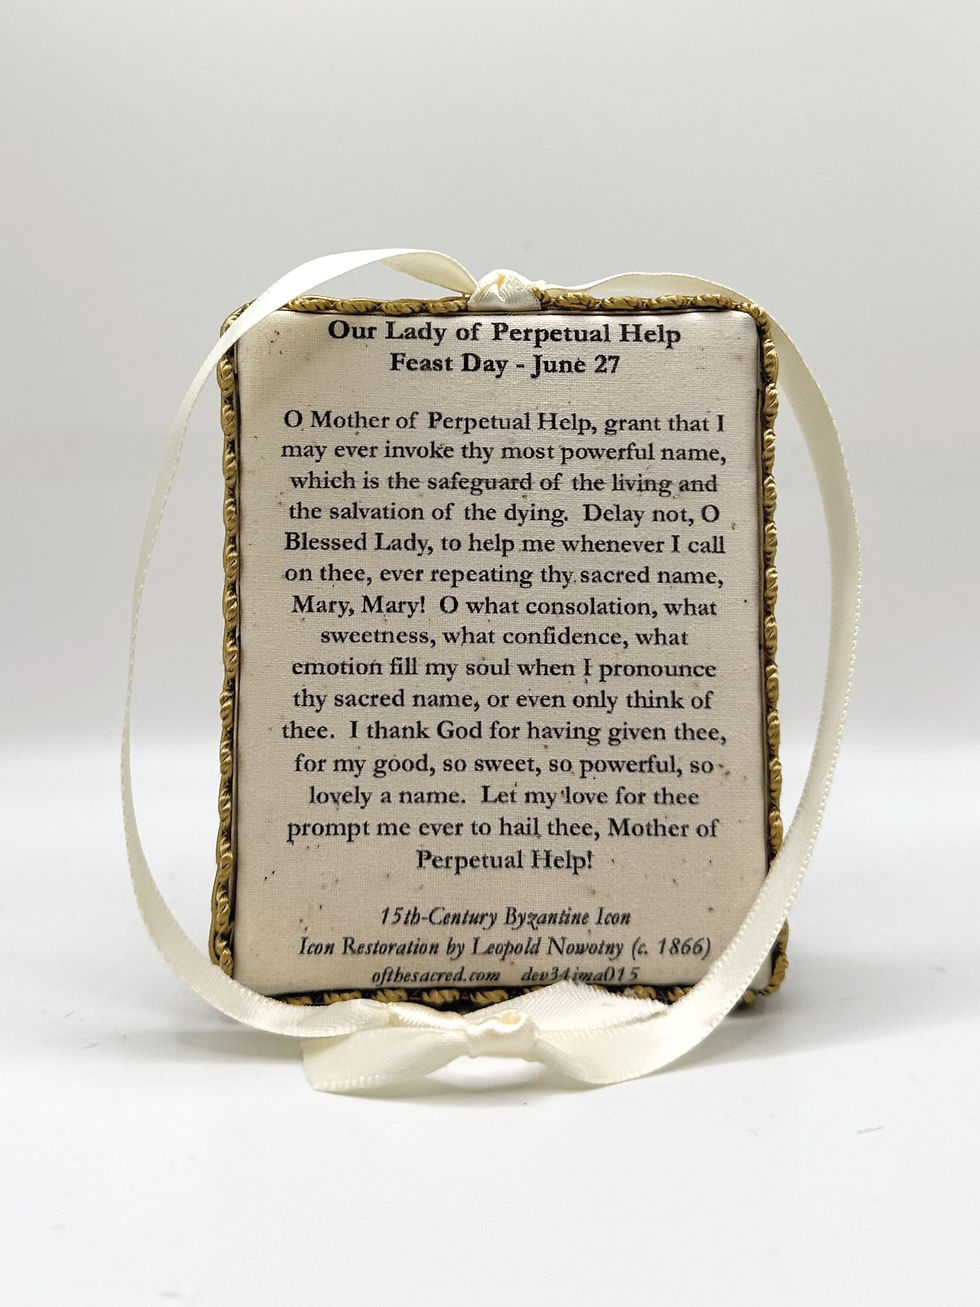 Our Lady of Perpetual Help
Feast Day - June 27
O Mother of Perpetual Help, grant that I
may ever invoke thy most powerful name,
which is the safeguard of the living and
the salvation of the dying. Delay not, O
Blessed Lady, to help me whenever I call
on thee, ever repeating thy sacred name,
Mary, Mary! O what consolation, what
sweetness, what confidence, what
emotion fill my soul when I pronounce
thy sacred name, or even only think of
thee. I thank God for having given thee,
for my good, so sweet, so powerful, so
lovely a name. Let my love for thee
prompt me ever to hail thee, Mother of
Perpetual Help!
15th-Century Byzantine Icon
Icon Restoration by Leopold Nowotny (c. 1866)
ofthesacred.com dev34ima015